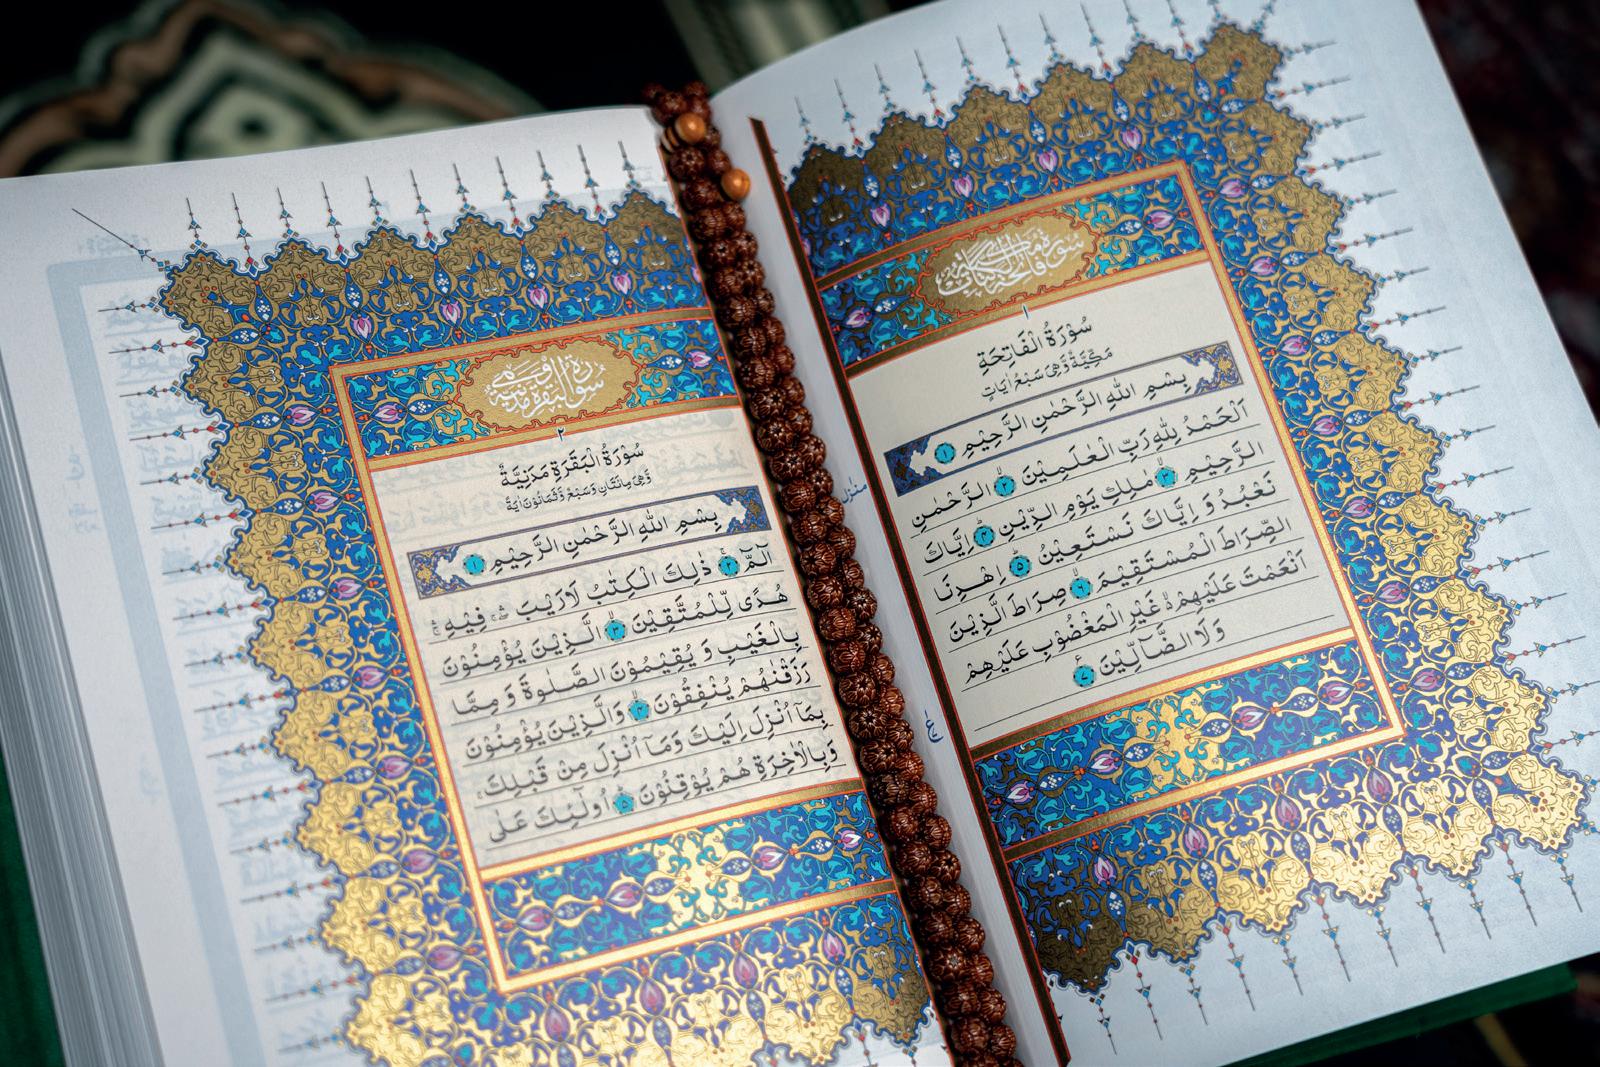 سورة فاتحة الكتاب مكية
١
سُوْرَةُ الْفَاتِحَةِ
مَكِّيَّةٌ وَّهِيَ سَبْعُ اٰيَاتٍ
بِسْمِ اللهِ الرَّحْمٰنِ الرَّحِيْمِ ١
اَلْحَمْدُ لِلّٰهِ رَبِّ الْعٰلَمِيْنَ ٢ الرَّحْمٰنِ
الرَّحِيْمِ ٣ مٰلِكِ يَوْمِ الدِّيْنِ ٤ اِيَّاكَ
نَعْبُدُ وَ اِيَّاكَ نَسْتَعِيْنُ ٥ اِهْدِنَا
الصِّرَاطَ الْمُسْتَقِيْمَ ٦ صِرَاطَ الَّذِيْنَ
اَنْعَمْتَ عَلَيْهِمْ ۙ غَيْرِ الْمَغْضُوْبِ عَلَيْهِمْ
وَلَا الضَّآلِّيْنَ ٧
منزل
ع
سورة البقرة مدنية وهي
٢
سُوْرَةُ الْبَقَرَةِ مَدَنِيَّةٌ
وَّهِيَ مِائَتَانِ وَسَبْعٌ وَّثَمَانُوْنَ اٰيَةً
بِسْمِ اللهِ الرَّحْمٰنِ الرَّحِيْمِ ١
الٓمّٓ ٢ ذٰلِكَ الْكِتٰبُ لَا رَيْبَ ۛ فِيْهِ ۛ
هُدًى لِّلْمُتَّقِيْنَ ٣ الَّذِيْنَ يُؤْمِنُوْنَ
بِالْغَيْبِ وَ يُقِيْمُوْنَ الصَّلٰوةَ وَ مِمَّا
رَزَقْنٰهُمْ يُنْفِقُوْنَ ٤ وَالَّذِيْنَ يُؤْمِنُوْنَ
بِمَآ اُنْزِلَ اِلَيْكَ وَمَآ اُنْزِلَ مِنْ قَبْلِكَ
وَبِالْاٰخِرَةِ هُمْ يُوْقِنُوْنَ ٥ اُولٰٓئِكَ عَلٰى